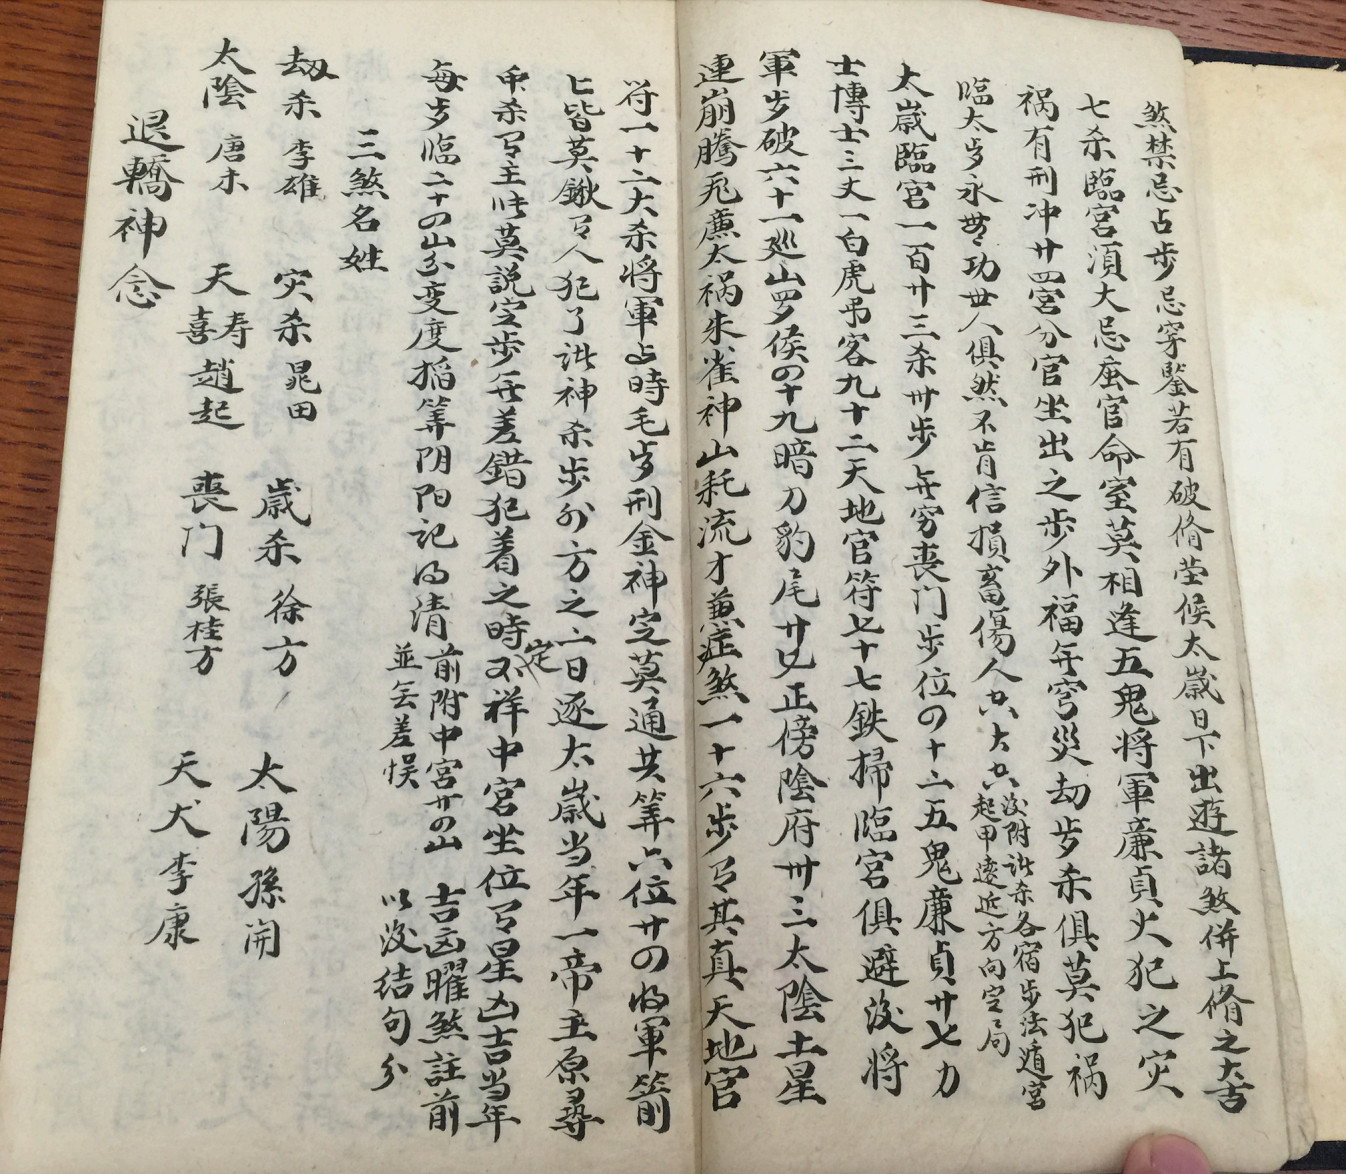 煞禁忌占步忌穿鑿若有破脩茔候太歲日下出遊諸煞併上脩之大吉
七杀臨宫須大忌蚕官命室莫相逢五鬼将軍廉貞火犯之灾
祸有刑冲廿四宫分官坐出之步外福年穹災劫岁杀俱莫犯祸
臨太岁永無功世人俱然不肯信損畜傷人大
後附此杀各宿步法遁宫
起甲遠近方向定局
太歲臨官一百廿三杀卅步年穷喪门步位四十二五鬼廉貞廿七力
士博士三丈一白虎弔客九十二天地官符七十七鉄掃臨宫俱避後将
軍步破六十一巡山罗候四十九暗刀豹尾廿七正傍陰府卅三太陰土星
連崩騰飛廉太祸朱雀神山耗流才兼症煞一十六步曰其真天地官
符一十二大杀将軍占時毛岁刑金神定莫通共筭六位廿四将軍箭
上皆莫鍬曰人犯了此神杀步外方之二日逐太歲当年一帝主原尋
中杀曰主此莫説定步年差錯犯着之時定不祥中宫坐位曰星凶吉当年
每岁臨二十四山分变度稻筭阴阳记得清
前附中宫廿四山
並無差悮
吉凶曜煞註前
以後结句分
三煞名姓
劫杀 李雄 灾杀 晁田 歲杀 徐方 太陽 孫开
太陰 唐木 天喜寿 趙起 喪门 張桂方 天犬 李康
退轎神念